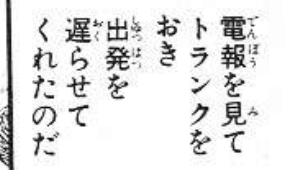 電報を見て
トランクを
おき
出発を
遅らせて
くれたのだ